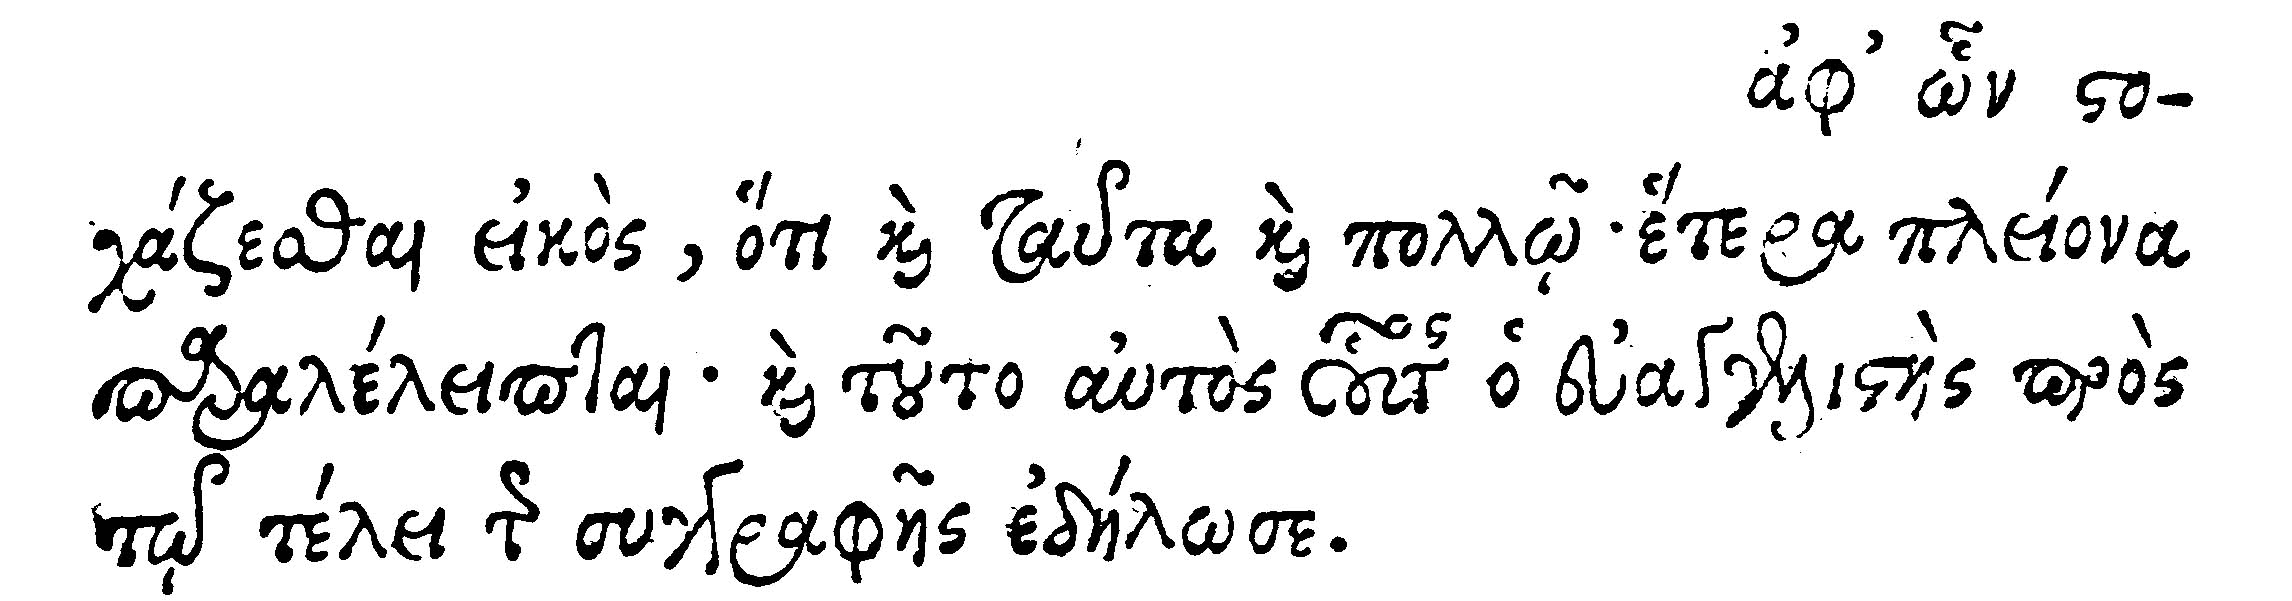 ἀφ’ ὧν στο-
χάζεσθαι εἰκὸς, ὅτι καὶ ταῦτα καὶ πολλῷ · ἕτερα πλείονα
παραλέλειπται · καὶ τοῦτο αὐτὸς οὗτος ὁ εὐαγγελιστὴς πρὸς
τῷ τέλει τῆς συγγραφῆς ἐδήλωσε.